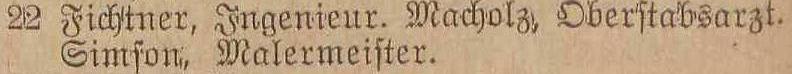 22 Fichtner, Ingenieur. Macholz, Oberstabsarzt.
Simson, Malermeister.